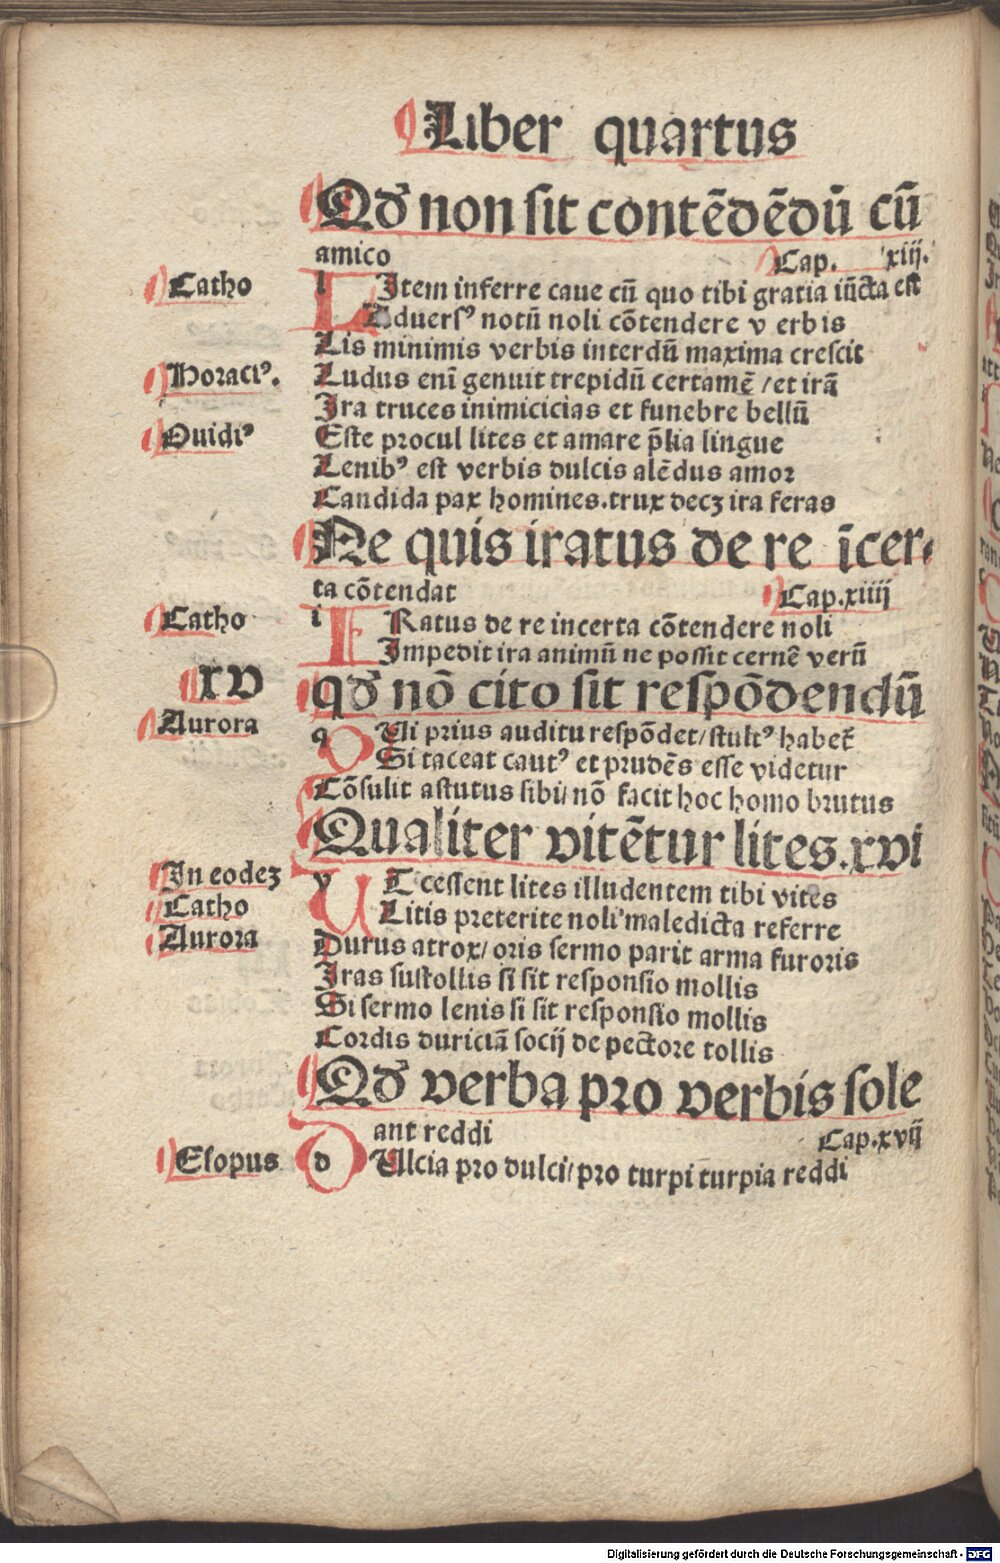 Liber quartus
Qď non sit contēdēdū cū
amico Cap. xiij.
Catho l LItem inferre caue cū quo tibi gratia iūcta est
Aduersꝰ notū noli cōtendere v erbis
Lis minimis verbis interdū maxima crescit
Horaciꝰ. Ludus enī genuit trepidū certamē / et irā
Ira truces inimicicias et funebre bellū
Ouidiꝰ Este procul lites et amare p̄lia lingue
Lenibꝰ est verbis dulcis alēdus amor
Candida pax homines. trux decꝫ ira feras
Ne quis iratus de re īcer⸗
ta cōtendat Cap. xiiij
Catho i IRatus de re incerta cōtendere noli
Impedit ira animū ne possit cernē verū
XV qď nō cito sit respōdendū
Aurora q QUi prius auditu respōdet / stultꝰ habet̄
Si taceat cautꝰ et prudēs esse videtur
Cōsulit astutus sibi / nō facit hoc homo brutus
Qualiter vitētur lites. xvi
In eodeꝫ v UT cessent lites illudentem tibi vites
Catho Litis preterite noli maledicta referre
Aurora Durus atrox / oris sermo parit arma furoris
Iras sustollis si sit responsio mollis
Si sermo lenis si sit responsio mollis
Cordis duriciā socij de pectore tollis
Qď verba pro verbis sole
ant reddi Cap. xvij
Esopus d DUlcia pro dulci / pro turpi turpia reddi
Digitalisierung gefördert durch die Deutsche Forschungsgemeinschaft - DFG